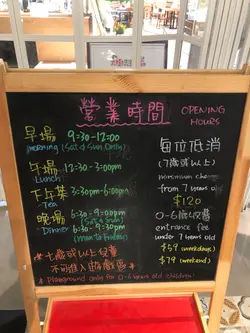 營業時間 OPENING HOURS
早場 9:30-12:00
morning (Sat & Sun Only)
午場 12:30-3:00pm
Lunch
下午茶 3:30pm-6:00pm
Tea
晚場 6:30-9:00pm
Dinner
6:30-9:30pm
(mon to Friday)
*七歲或以上兒童
不可進入遊戲區*
Playground only for 0-6 years old children!
每位低消
(7歲或以上)
minimum charge
from 7 years old
$120
0-6歲兒童
entrance fee
under 7 years old
$59 (weekdays)
$79 (weekend)